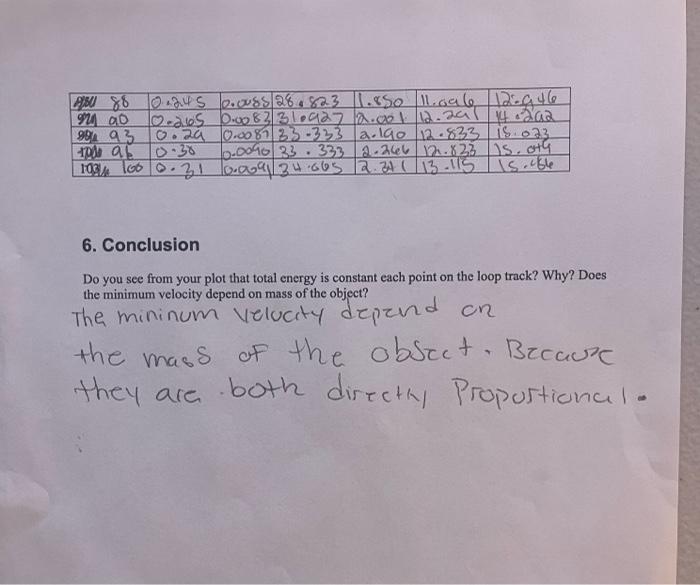 88 0.245 0.0085 28.823 1.850 12.946
90 0.265 0.0083 31.927 2.001 12.291 14.292
93 0.29 0.0087 33.333 2.190 12.833 15.023
96 0.30 0.0090 33.333 2.266 12.833
100 0.31 0.0091 34.665 2.341 13.115
6. Conclusion
Do you see from your plot that total energy is constant each point on the loop track? Why? Does
the minimum velocity depend on mass of the object?
The mininum velocity depend on
the mass of the obsect. Because
they are both directly Proportional.